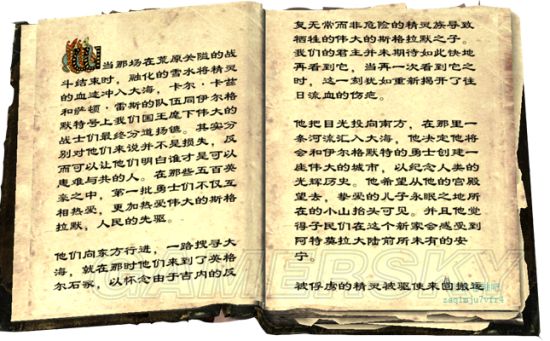 当那场在荒原关隘的战
斗结束时，融化的雪水将精灵
的血迹冲入大海，卡尔·卡兹
和萨顿·雷斯的队伍同伊尔格
默特号上我们国王麾下伟大的
战士们最终分道扬镳。其实分
别对他们来说并不是损失，反
而可以让他们明白谁才是可以
患难与共的人。在那些五百英
豪之中，第一批勇士们不仅互
相热爱，更加热爱伟大的斯格
拉默，人民的先驱。
他们向东方行进，一路搜寻大
海，就在那时他们来到了英格
尔石冢，以怀念由于吉内的反
复无常而非危险的精灵族导致
牺牲的伟大的斯格拉默之子，
我们的君主并未期待如此快地
再看到它，当再一次看到它之
时，这一刻犹如重新揭开了往
日流血的伤疤。
他把目光投向南方，在那里一
条河流汇入大海，他决定他将
会和伊尔格默特的勇士创建一
座伟大的城市，以纪念人类的
光辉历史。他希望从他的宫殿
望去，挚爱的儿子永眠之地所
在的小山抬头可见。并且他觉
得子民们在这个新家会感受到
阿特莫拉大陆前所未有的安
宁。
被俘虏的精灵被驱使来回搬运
GAMERSKY
zaqimju7vfr4